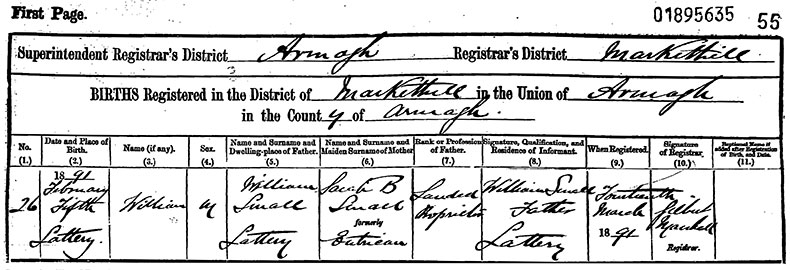 First Page. 01895635 55
Superintendent Registrar's District Armagh Registrar's District Markethill
3
BIRTHS Registered in the District of Markethill in the Union of Armagh
in the County of Armagh.
No. Date and Place of Birth. Name (if any). Sex. Name and Surname and Dwelling-place of Father. Name and Surname and Maiden Surname of Mother Rank or Profession of Father. Signature, Qualification, and Residence of Informant. When Registered. Signature of Registrar. Baptismal Name if added after Registration of Birth, and Date.
(1.) (2.) (3.) (4.) (5.) (6.) (7.) (8.) (9.) (10.) (11.)
26 1891 February Fifth Lattery. William M William Small Lattery Sarah B Small formerly Landed Proprietor William Small Father Lattery Fourteenth March 1891 Gilbert Registrar.